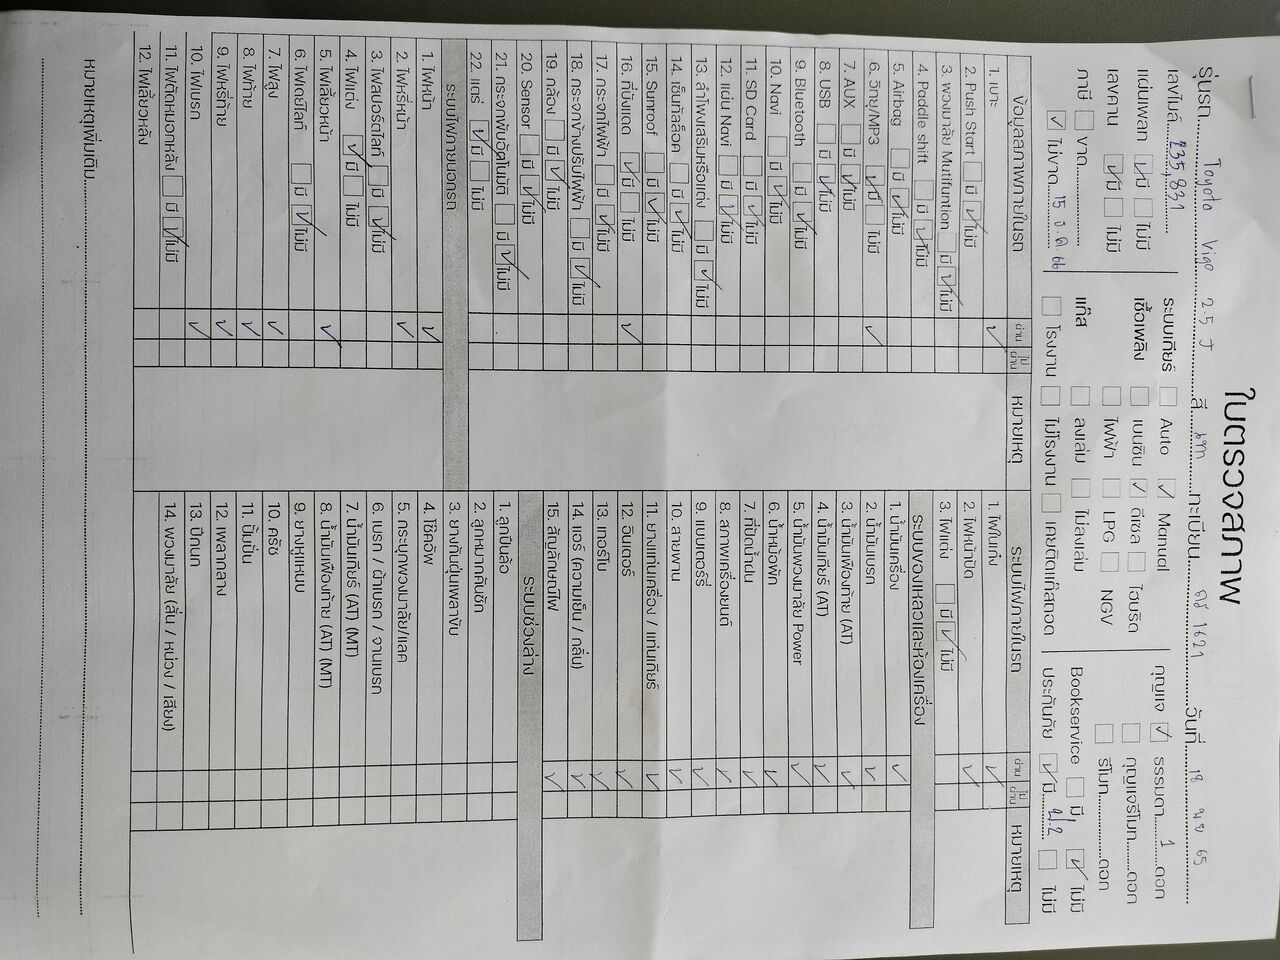 ใบตรวจสภาพ
รุ่นรถ Toyota Vigo 2.5 J สี เทา ทะเบียน 1621 วันที่ 18 พย 65
เลขไมล์ 235,831 ระบบเกียร์ ☐ Auto ☑ Manual กุญแจ ☑ ธรรมดา 1 ดอก
แผ่นเพลท ☑ มี ☐ ไม่มี เชื้อเพลิง ☐ เบนซิน ☑ ดีเซล ☐ ไฮบริด ☐ กุญแจรีโมท........ดอก
เลขคาน ☑ มี ☐ ไม่มี ☐ ไฟฟ้า ☐ LPG ☐ NGV ☐ รีโมท..............ดอก
ภาษี ☐ ขาด.................. แก๊ส ☐ ลงเล่ม ☐ ไม่ลงเล่ม Bookservice ☐ มี ☑ ไม่มี
☑ ไม่ขาด 15 ธ.ค. 66 ☐ โรงงาน ☐ ไม่โรงงาน ☐ เคยติดแก๊สถอด ประกันภัย ☑ มี ป.2 ☐ ไม่มี
ข้อมูลสภาพภายในรถ ผ่าน ไม่ผ่าน หมายเหตุ
1. เบาะ ✓
2. Push Start ☐ มี ☑ ไม่มี
3. พวงมาลัย Mutifuntion ☐ มี ☑ ไม่มี
4. Paddle shift ☐ มี ☑ ไม่มี
5. Airbag ☐ มี ☑ ไม่มี
6. วิทยุ/MP3 ☑ มี ☐ ไม่มี ✓
7. AUX ☐ มี ☑ ไม่มี
8. USB ☐ มี ☑ ไม่มี
9. Bluetooth ☐ มี ☑ ไม่มี
10. Navi ☐ มี ☑ ไม่มี
11. SD Card ☐ มี ☑ ไม่มี
12. แผ่น Navi ☐ มี ☑ ไม่มี
13. ลำโพงเสริมหรือแต่ง ☐ มี ☑ ไม่มี
14. เซ็นทรัลล็อค ☐ มี ☑ ไม่มี
15. Sunroof ☐ มี ☑ ไม่มี
16. ที่บังแดด ☑ มี ☐ ไม่มี ✓
17. กระจกไฟฟ้า ☐ มี ☑ ไม่มี
18. กระจกข้างปรับไฟฟ้า ☐ มี ☑ ไม่มี
19. กล้อง ☐ มี ☑ ไม่มี
20. Sensor ☐ มี ☑ ไม่มี
21. กระจกพับอัตโนมัติ ☐ มี ☑ ไม่มี
22. แตร ☑ มี ☐ ไม่มี
ระบบไฟภายนอกรถ
1. ไฟหน้า ✓
2. ไฟหรี่หน้า ✓
3. ไฟสปอร์ตไลท์ ☐ มี ☑ ไม่มี
4. ไฟแต่ง ☑ มี ☐ ไม่มี
5. ไฟเลี้ยวหน้า ✓
6. ไฟเดย์ไลท์ ☐ มี ☑ ไม่มี
7. ไฟสูง ✓
8. ไฟท้าย ✓
9. ไฟหรี่ท้าย ✓
10. ไฟเบรก ✓
11. ไฟตัดหมอกหลัง ☐ มี ☑ ไม่มี
12. ไฟเลี้ยวหลัง
ระบบไฟภายในรถ ผ่าน ไม่ผ่าน หมายเหตุ
1. ไฟในเก๋ง ✓
2. ไฟหน้าปัด ✓
3. ไฟแต่ง ☐ มี ☑ ไม่มี
ระบบของเหลวและห้องเครื่อง
1. น้ำมันเครื่อง ✓
2. น้ำมันเบรก ✓
3. น้ำมันเฟืองท้าย (AT) ✓
4. น้ำมันเกียร์ (AT) ✓
5. น้ำมันพวงมาลัย Power ✓
6. น้ำหม้อพัก ✓
7. ที่ปัดน้ำฝน ✓
8. สภาพเครื่องยนต์ ✓
9. แบตเตอรี่ ✓
10. สายพาน ✓
11. ยางแท่นเครื่อง / แท่นเกียร์ ✓
12. อินเตอร์ ✓
13. เทอร์โบ ✓
14. แอร์ (ความเย็น / กลิ่น) ✓
15. สัญลักษณ์ไฟ ✓
ระบบช่วงล่าง
1. ลูกปืนล้อ
2. ลูกหมากคันชัก
3. ยางกันฝุ่นเพลาขับ
4. โช๊คอัพ
5. กระปุกพวงมาลัย/แลค
6. เบรก / ผ้าเบรก / จานเบรก
7. น้ำมันเกียร์ (AT) (MT)
8. น้ำมันเฟืองท้าย (AT) (MT)
9. ยางหูแหนบ
10. ครัช
11. ปั๊มปั่น
12. เพลากลาง
13. ปีกนก
14. พวงมาลัย (ลื่น / หน่วง / เสียง)
หมายเหตุเพิ่มเติม